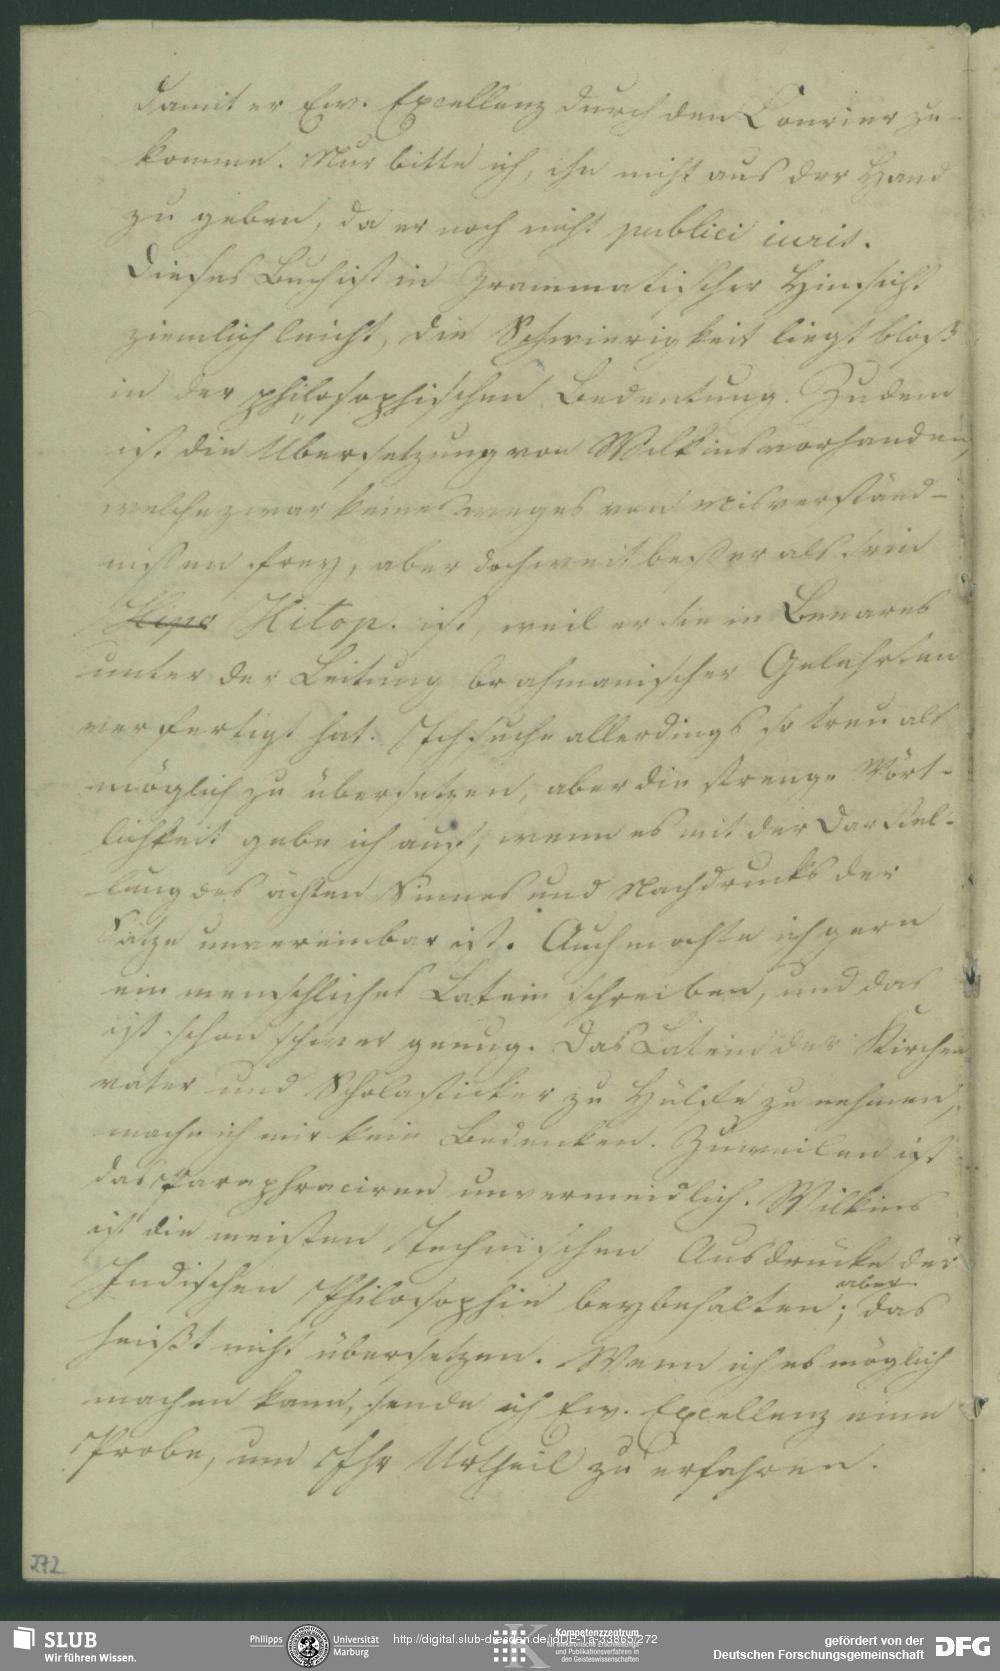 damit er Ew. Excellenz durch den Courier zu-
komme. Nur bitte ich, ihn nicht aus der Hand
zu geben, da er noch nicht publici iuris.
Dieses Buch ist in grammatischer Hinsicht
ziemlich leicht, die Schwierigkeit liegt bloß
in der philosophischen Bedeutung. Zudem
ist die Übersetzung von Wilkins vorhanden,
welche zwar keinesweges von Misverständ-
nissen frey, aber doch weit besser als sein
Hipo Hitop. ist, weil er sie in Benares
unter der Leitung brahmanischer Gelehrten
verfertigt hat. Ich suche allerdings so treu als
möglich zu übersetzen, aber die strenge Wört-
lichkeit gebe ich auf, wenn es mit der Darstel-
lung des ächten Sinnes und Nachdrucks der
Sätze unvereinbar ist. Auch möchte ich gern
ein menschliches Latein schreiben, und das
ist schon schwer genug. Das Latein der Kirchen-
väter und Scholasticker zu Hülfe zu nehmen,
mache ich mir kein Bedenken. Zuweilen ist
das Paraphraciren unvermeidlich. Wilkins
ist die meisten technischen Ausdrücke der
aber
Indischen Philosophie beybehalten; das
heißt nicht übersetzen. Wenn ich es möglich
machen kann, sende ich Ew. Excellenz eine
Probe, um Ihr Urtheil zu erfahren.
272
SLUB
Wir führen Wissen.
Philipps Universität
Marburg
http://digital.slub-dresden.de/idDE-1a-33865/272
Kompetenzzentrum
für elektronische Erschließungs-
und Publikationsverfahren in
den Geisteswissenschaften
gefördert von der
Deutschen Forschungsgemeinschaft
DFG